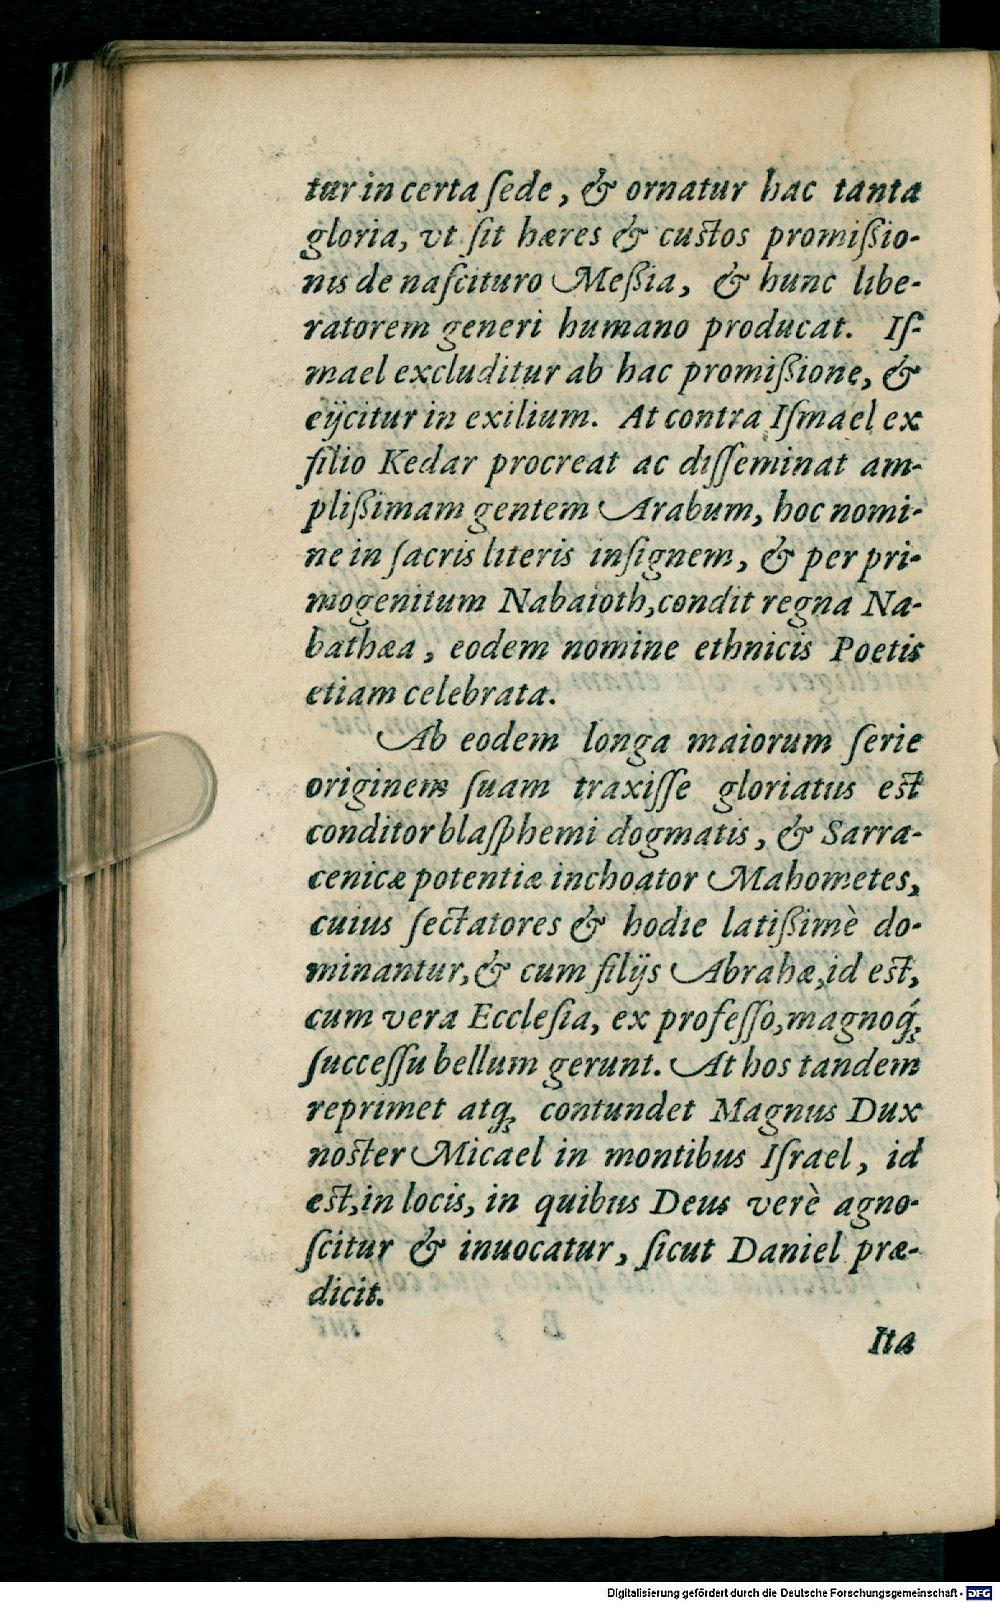 tur in certa ſede, & ornatur hac tanta
gloria, vt ſit hæres & custos promiſsio-
nis de naſcituro Meſsia, & hunc libe-
ratorem generi humano producat. Iſ-
mael excluditur ab hac promiſsione, &
eijcitur in exilium. At contra Iſmael ex
filio Kedar procreat ac diſſeminat am-
pliſsimam gentem Arabum, hoc nomi-
ne in ſacris literis inſignem, & per pri-
mogenitum Nabaioth, condit regna Na-
bathæa, eodem nomine ethnicis Poetis
etiam celebrata.
Ab eodem longa maiorum ſerie
originem ſuam traxiſſe gloriatus est
conditor blaſphemi dogmatis, & Sarra-
cenicæ potentiæ inchoator Mahometes,
cuius ſectatores & hodie latiſsimè do-
minantur, & cum filijs Abrahæ, id est,
cum vera Eccleſia, ex profeſſo, magnoq́;
ſucceſſu bellum gerunt. At hos tandem
reprimet atq; contundet Magnus Dux
noster Micael in montibus Iſrael, id
est, in locis, in quibus Deus verè agno-
ſcitur & inuocatur, ſicut Daniel præ-
dicit.
Ita
Digitalisierung gefördert durch die Deutsche Forschungsgemeinschaft - DFG